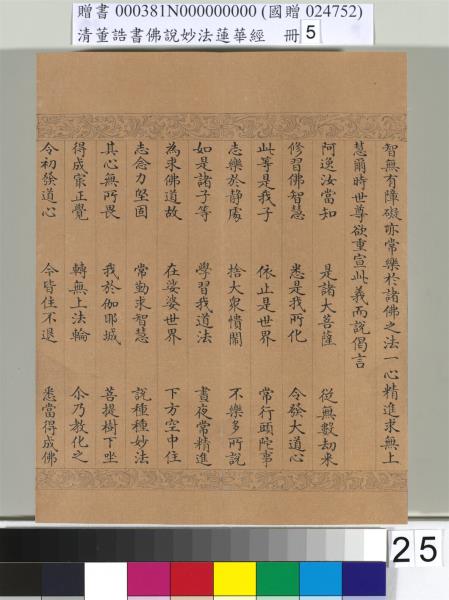 贈書 000381N000000000 (國贈 024752)
清董誥書佛說妙法蓮華經 冊 5
智無有障礙亦常樂於諸佛之法一心精進求無上
慧爾時世尊欲重宣此義而說偈言
阿逸汝當知 是諸大菩薩 從無數劫来
修習佛智慧 悉是我所化 令發大道心
此等是我子 依止是世界 常行頭陀事
志樂於静處 捨大衆憒閙 不樂多所說
如是諸子等 學習我道法 晝夜常精進
為求佛道故 在娑婆世界 下方空中住
志念力堅固 常勤求智慧 説種種妙法
其心無所畏 我於伽耶城 菩提樹下坐
得成㝡正覺 轉無上法輪 尒乃教化之
令初發道心 今皆住不退 悉當得成佛
25